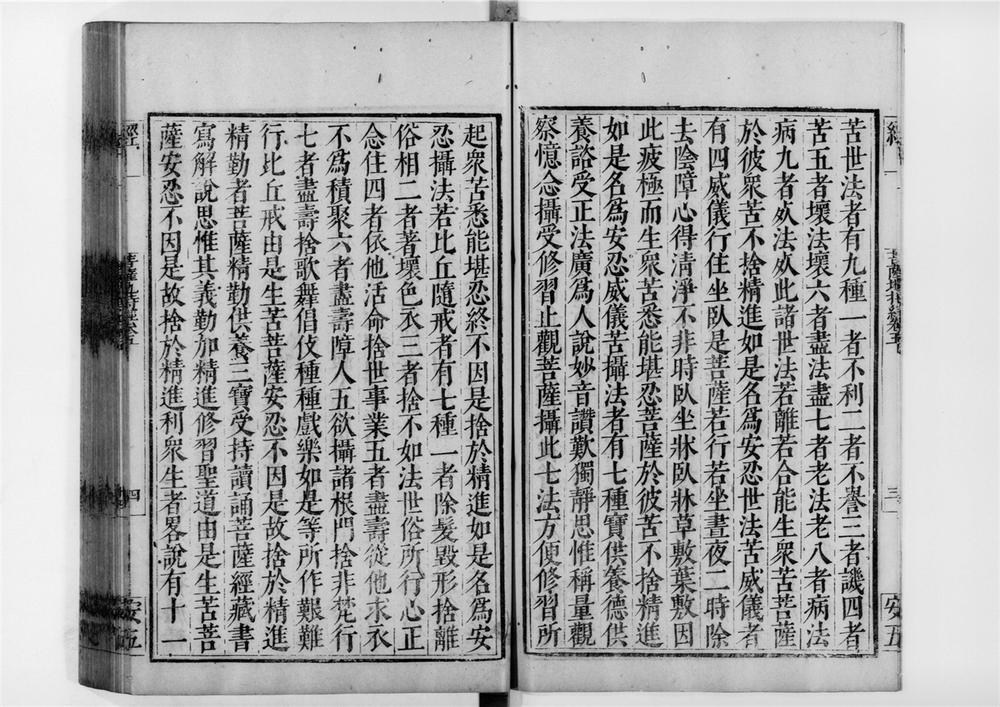 苦世法者有九種一者不利二者不譽三者譏四者
苦五者壞法壞六者盡法盡七者老法老八者病法
病九者死法死此諸世法若離若合能生衆苦菩薩
於彼衆苦不捨精進如是名爲安忍世法苦威儀者
有四威儀行住坐臥是菩薩若行若坐晝夜二時除
去陰障心得清淨不非時臥坐牀臥牀草敷葉敷因
此疲極而生衆苦悉能堪忍菩薩於彼苦不捨精進
如是名爲安忍威儀苦攝法者有七種寶供養德供
養諮受正法廣爲人說妙音讚歎獨靜思惟稱量觀
察憶念攝受修習止觀菩薩攝此七法方便修習所
安五
三
起衆苦悉能堪忍終不因是捨於精進如是名爲安
忍攝法若比丘隨戒者有七種一者除髮毀形捨離
俗相二者著壞色衣三者捨不如法世俗所行心正
念住四者依他活命捨世事業五者盡壽從他求衣
不爲積聚六者盡壽障人五欲攝諸根門捨非梵行
七者盡壽捨歌舞倡伎種種戲樂如是等所作艱難
行比丘戒由是生苦菩薩安忍不因是故捨於精進
精勤者菩薩精勤供養三寶受持讀誦菩薩經藏書
寫解說思惟其義勤加精進修習聖道由是生苦菩
薩安忍不因是故捨於精進利衆生者畧說有十一
四
安五